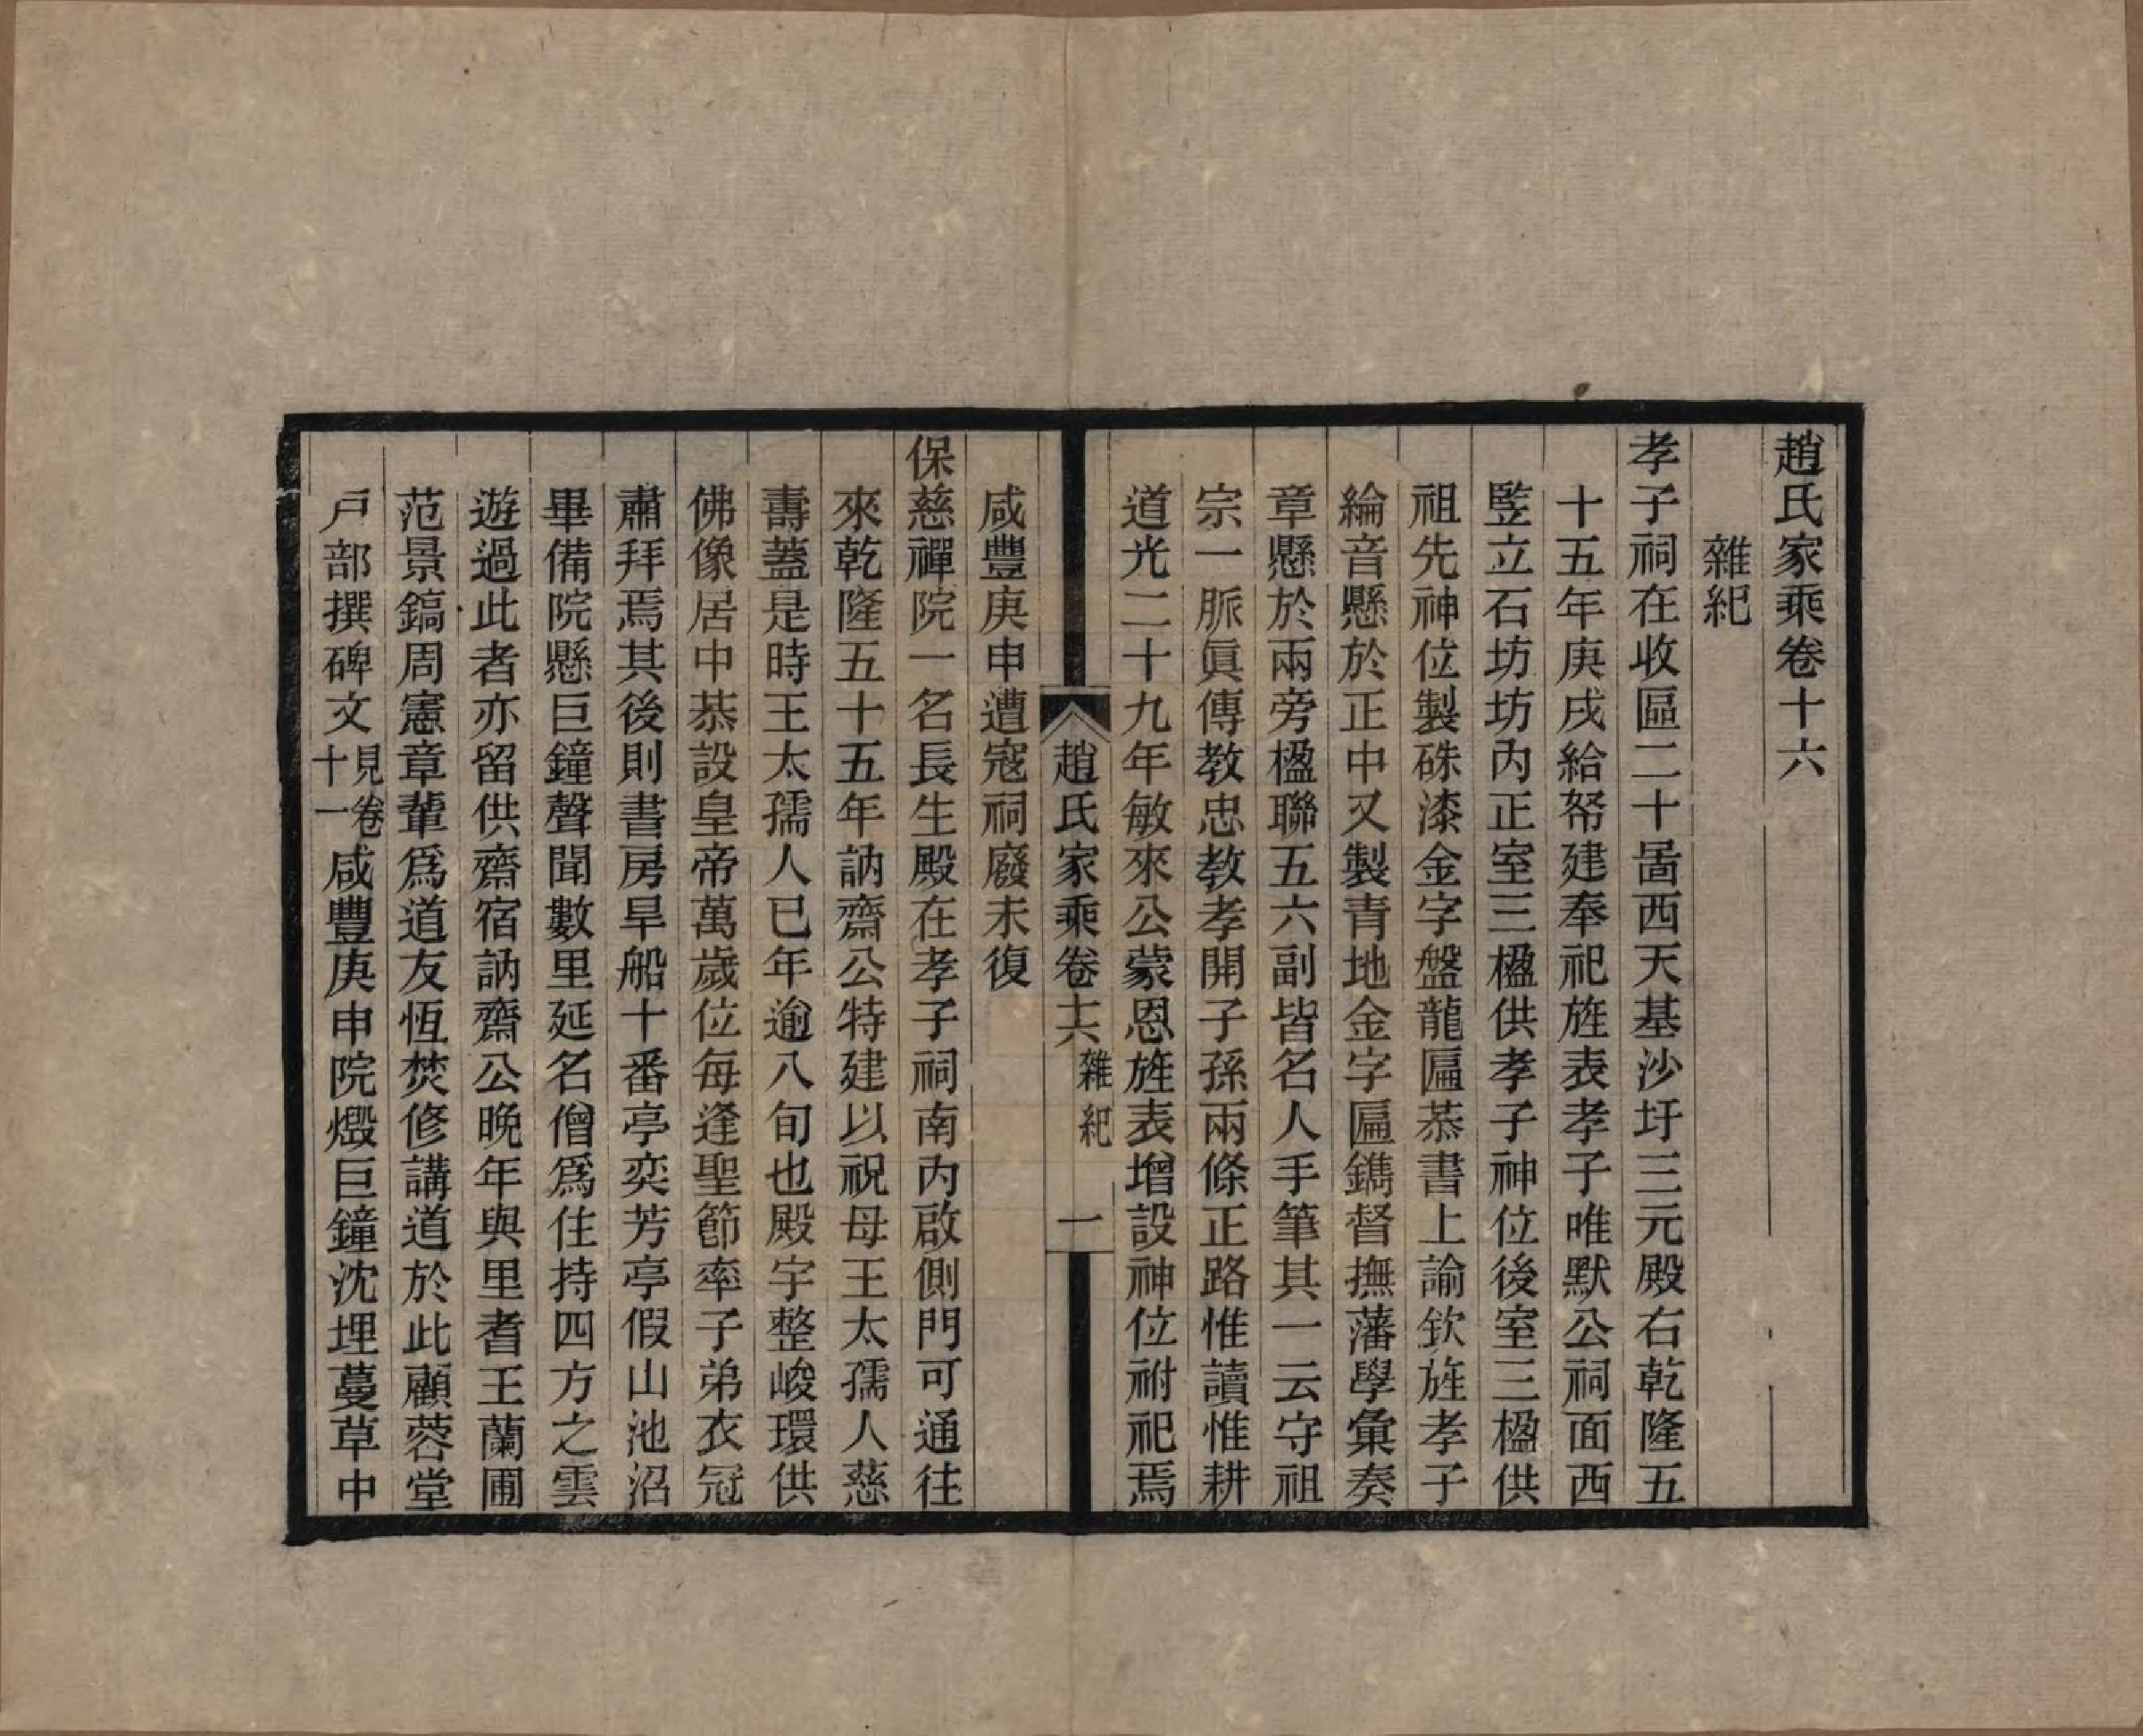 趙氏家乘卷十六
雜紀
孝子祠在收區二十啚西天基沙圩三元殿右乾隆五
十五年庚戌給帑建奉祀旌表孝子唯默公祠面西
豎立石坊坊內正室三楹供孝子神位後室三楹供
祖先神位製硃漆金字盤龍匾恭書上諭欽旌孝子
綸音懸於正中又製青地金字匾鐫督撫藩學彙奏
章懸於兩旁楹聯五六副皆名人手筆其一云守祖
宗一脈眞傳教忠教孝開子孫兩條正路惟讀惟耕
道光二十九年敏來公蒙恩旌表增設神位祔祀焉
趙氏家乘卷十六 雜紀 一
咸豐庚申遭寇祠廢未復
保慈禪院一名長生殿在孝子祠南內啟側門可通往
來乾隆五十五年訥齋公特建以祝母王太孺人慈
壽蓋是時王太孺人已年逾八旬也殿宇整峻環供
佛像居中恭設皇帝萬歲位每逢聖節率子弟衣冠
肅拜焉其後則書房旱船十番亭奕芳亭假山池沼
畢備院懸巨鐘聲聞數里延名僧爲住持四方之雲
遊過此者亦留供齋宿訥齋公晚年與里耆王蘭圃
范景鎬周憲章輩爲道友恆焚修講道於此顧蓉堂
戶部撰碑文見卷十一咸豐庚申院燬巨鐘沈埋蔓草中